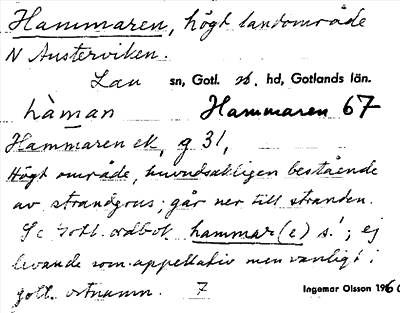 Hammaren, högt landområde
N Austerviken.
Lau sn, Gotl. s. hd, Gotlands län.
hàman Hammaren 67
Hammaren ek, g 31,
Högt område, huvudsakligen bestående
av strandgrus; går ner till stranden.
Se Gotl. ordbok hammar(e) s.¹; ej
levande som appellativ men vanligt i
gotl. ortnamn. 7
Ingemar Olsson 1960